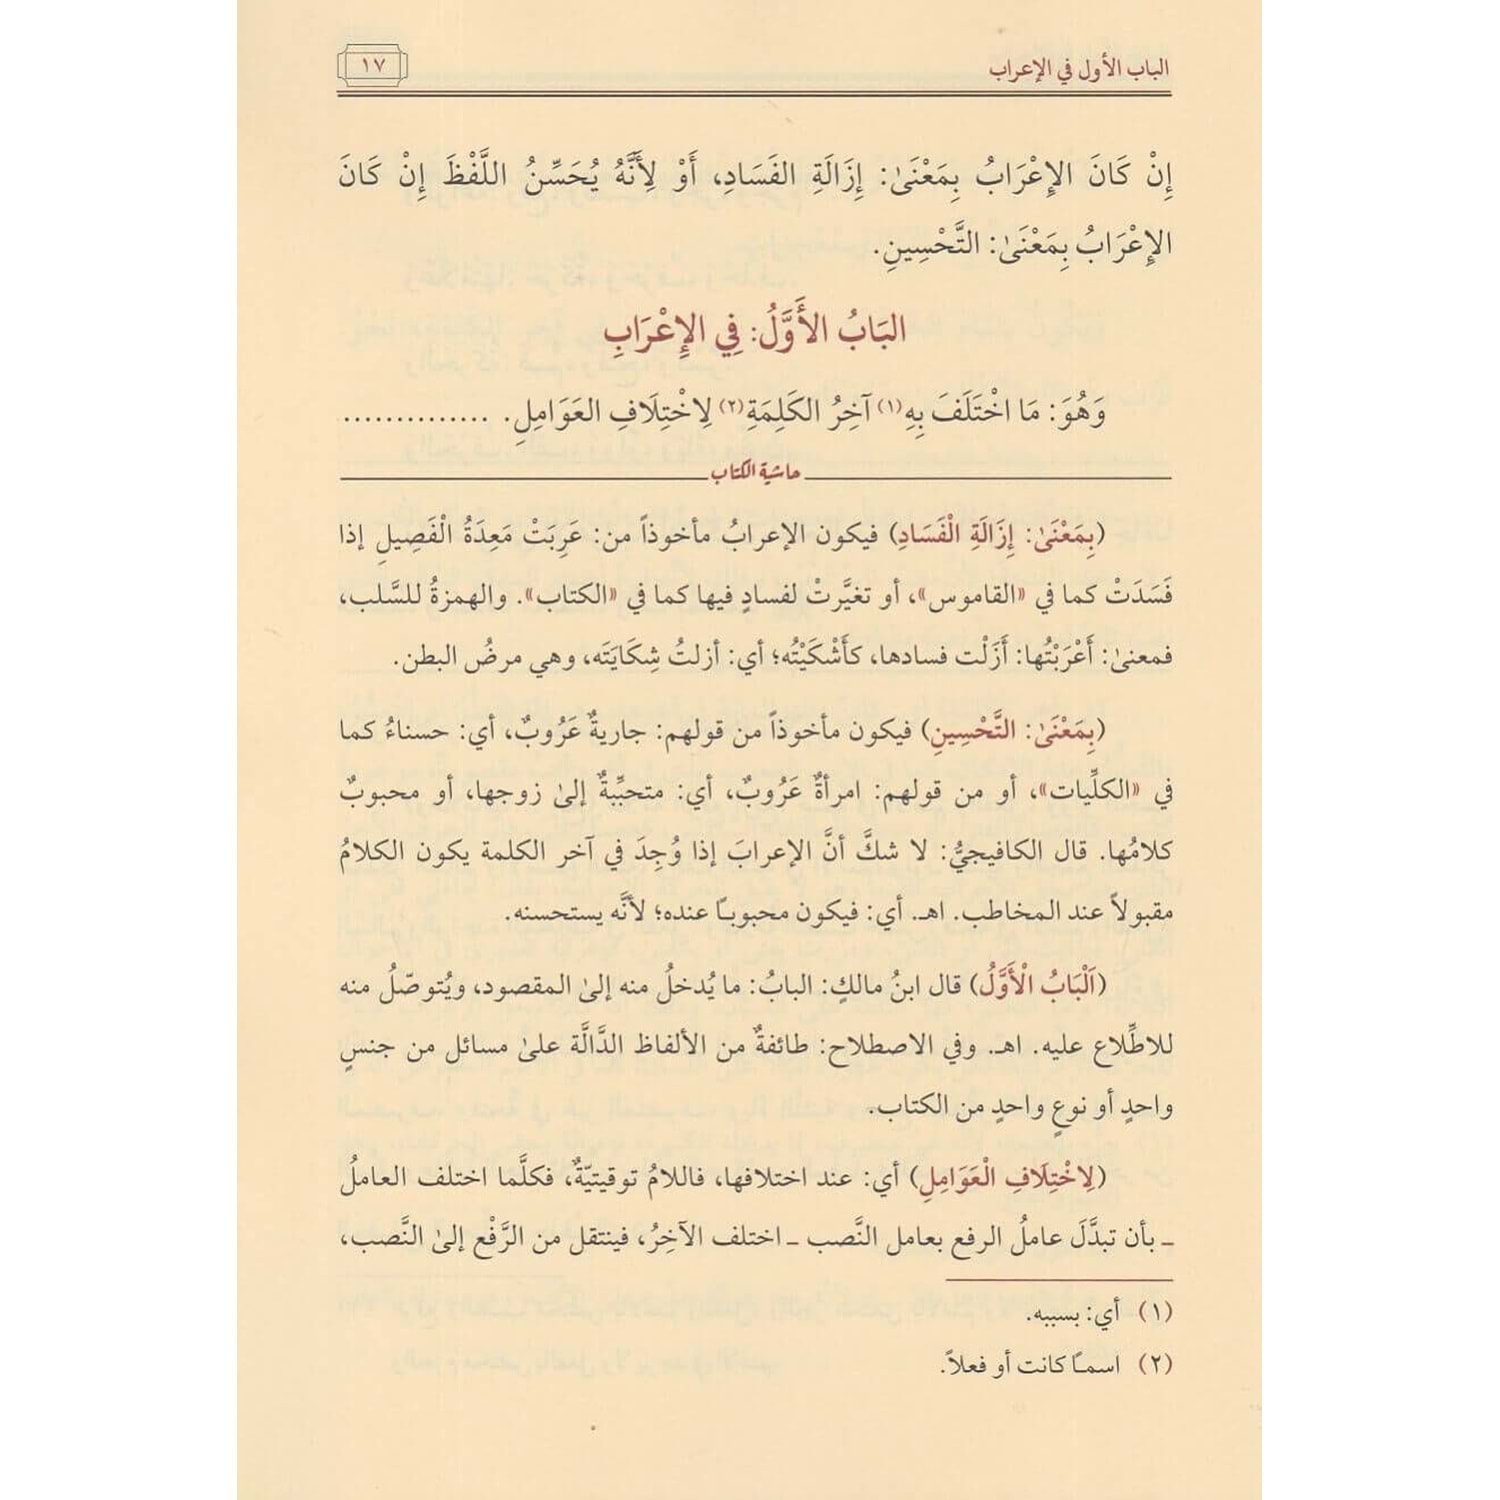 الباب الأول في الإعراب
١٧
إِنْ كَانَ الإِعْرَابُ بِمَعْنَىٰ: إِزَالَةِ الفَسَادِ، أَوْ لِأَنَّهُ يُحَسِّنُ اللَّفْظَ إِنْ كَانَ
الإِعْرَابُ بِمَعْنَىٰ: التَّحْسِينِ.
البَابُ الأَوَّلُ: فِي الإِعْرَابِ
وَهُوَ: مَا اخْتَلَفَ بِهِ(١) آخِرُ الكَلِمَةِ(٢) لِاخْتِلَافِ العَوَامِلِ. ..............
حاشية الكتاب
(بِمَعْنَىٰ: إِزَالَةِ الْفَسَادِ) فيكون الإعرابُ مأخوذاً من: عَرِبَتْ مَعِدَةُ الْفَصِيلِ إذا
فَسَدَتْ كما في «القاموس»، أو تغيَّرتْ لفسادٍ فيها كما في «الكتاب». والهمزةُ للسَّلب،
فمعنىٰ: أَعْرَبْتُها: أَزَلْت فسادها، كأَشْكَيْتُه؛ أي: أزلتُ شِكَايَتَه، وهي مرضُ البطن.
(بِمَعْنَىٰ: التَّحْسِينِ) فيكون مأخوذاً من قولهم: جاريةٌ عَرُوبٌ، أي: حسناءُ كما
في «الكلِّيات»، أو من قولهم: امرأةٌ عَرُوبٌ، أي: متحبِّبةٌ إلىٰ زوجها، أو محبوبٌ
كلامُها. قال الكافيجيُّ: لا شكَّ أنَّ الإعرابَ إذا وُجِدَ في آخر الكلمة يكون الكلامُ
مقبولاً عند المخاطب. اهـ. أي: فيكون محبوباً عنده؛ لأنَّه يستحسنه.
(اَلْبَابُ الْأَوَّلُ) قال ابنُ مالكٍ: البابُ: ما يُدخلُ منه إلىٰ المقصود، ويُتوصّلُ منه
للاطِّلاع عليه. اهـ. وفي الاصطلاح: طائفةٌ من الألفاظ الدَّالَّة علىٰ مسائل من جنسٍ
واحدٍ أو نوعٍ واحدٍ من الكتاب.
(لِاخْتِلَافِ الْعَوَامِلِ) أي: عند اختلافها، فاللامُ توقيتيّةٌ، فكلَّما اختلف العاملُ
ـ بأن تبدَّلَ عاملُ الرفع بعامل النَّصب ـ اختلف الآخِرُ، فينتقل من الرَّفْع إلىٰ النَّصب،
(١) أي: بسببه.
(٢) اسمـاً كانت أو فعلاً.